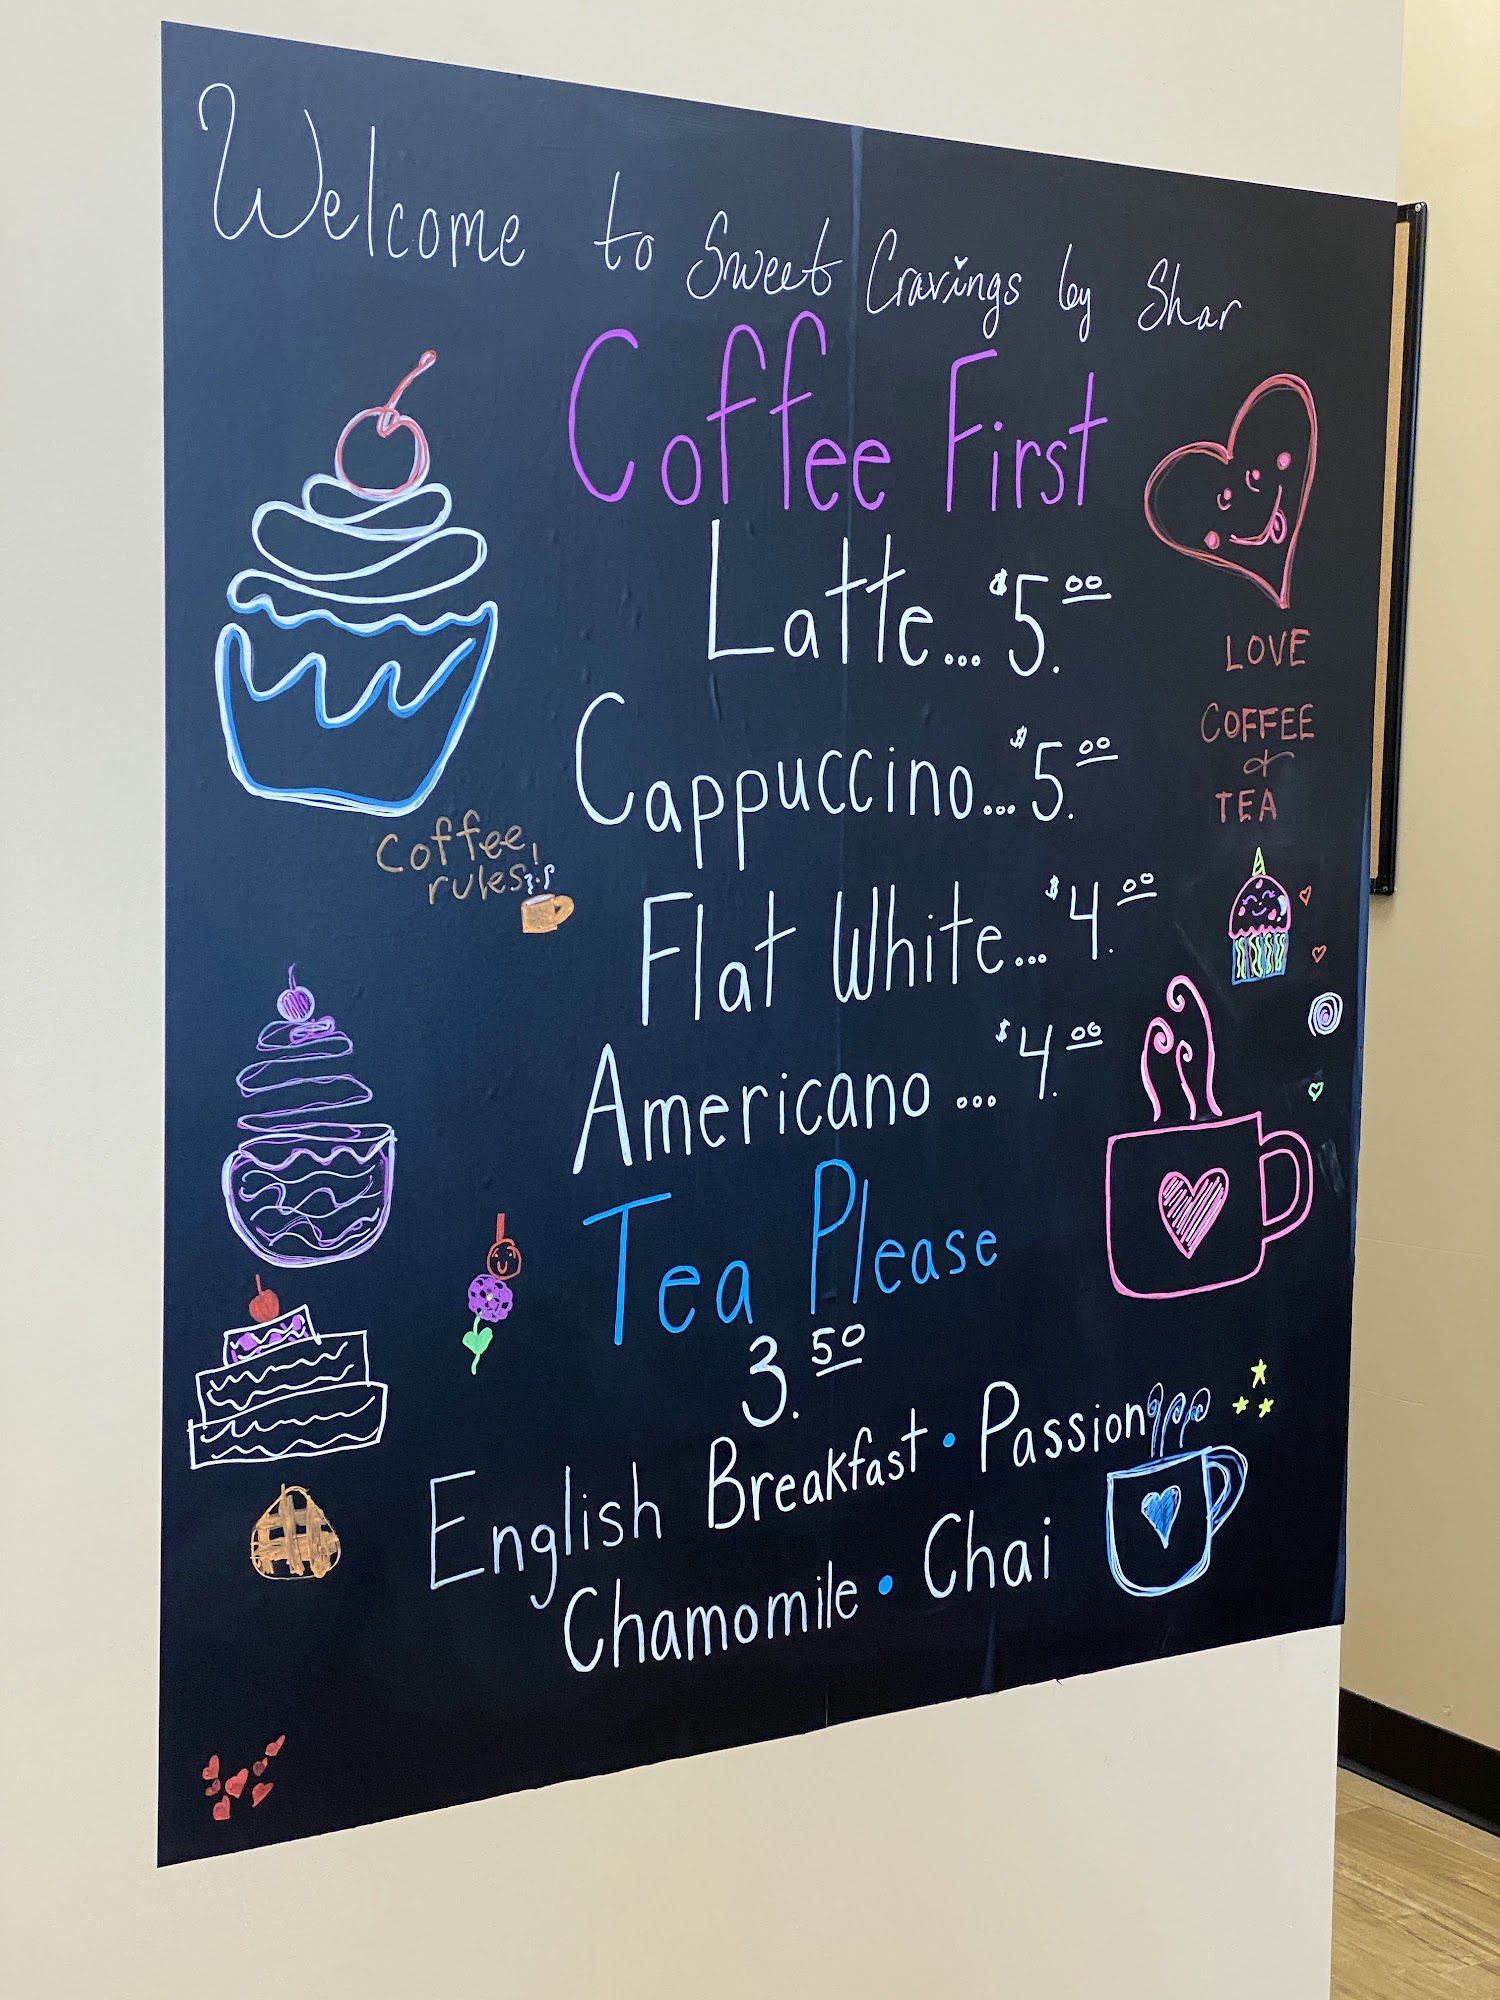 Welcome to Sweet Cravings by Shar
Coffee First
Latte... $5.00
Cappuccino... $5.00
Flat White... $4.00
Americano ... $4.00
Tea Please
3.50
English Breakfast • Passion
Chamomile • Chai
Coffee
rules!
LOVE
COFFEE
&
TEA